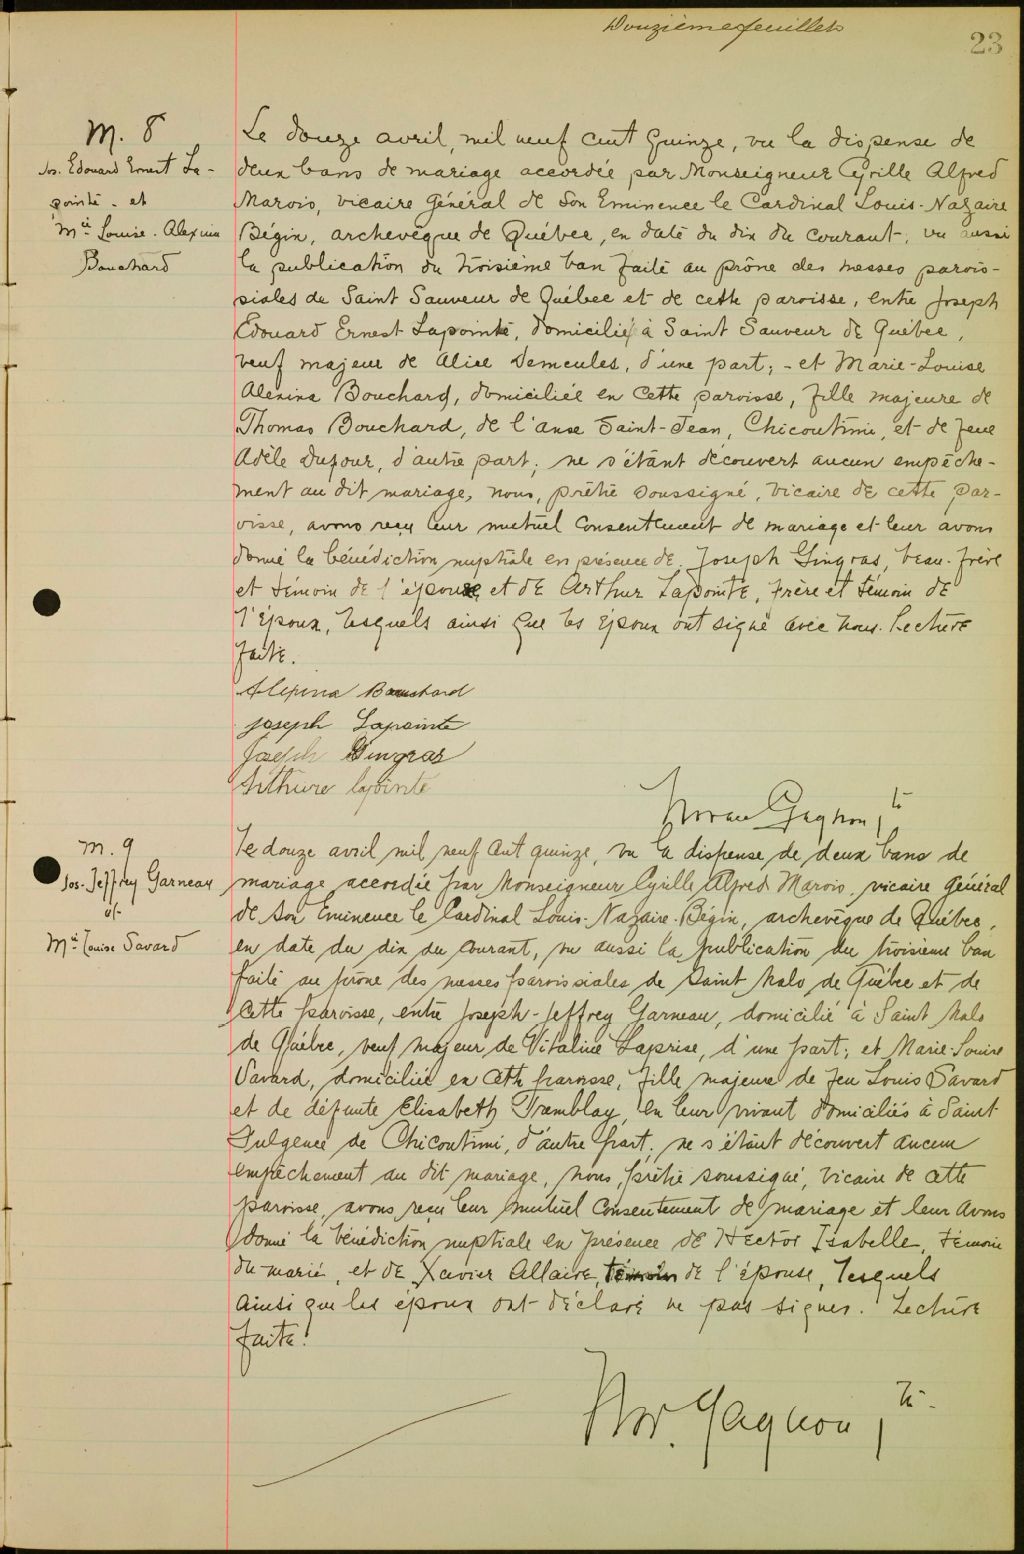 Douzième feuillet
23
M. 8
Jos. Edouard Ernest La-
pointe - et
Mie Louise - Alexina
Bouchard
Le douze avril, mil neuf cent quinze, vu la dispense de
deux bans de mariage accordée par Monseigneur Cyrille Alfred
Marois, vicaire général de Son Eminence le Cardinal Louis-Nazaire
Bégin, archevêque de Québec, en date du dix du courant; vu aussi
la publication du troisième ban faite au prône des messes parois-
siales de Saint Sauveur de Québec et de cette paroisse, entre Joseph
Edouard Ernest Lapointe, domicilié à Saint Sauveur de Québec,
veuf majeur de Alice Demeules, d'une part; - et Marie-Louise
Alexina Bouchard, domiciliée en cette paroisse, fille majeure de
Thomas Bouchard, de l'anse Saint-Jean, Chicoutimi, et de feue
Adèle Dufour, d'autre part; ne s'étant découvert aucun empêche-
ment au dit mariage, nous, prêtre soussigné, vicaire de cette par-
oisse, avons reçu leur mutuel consentement de mariage et leur avons
donné la bénédiction nuptiale en présence de Joseph Gingras, beau-frère
et témoin de l'épouse, et de Arthur Lapointe, frère et témoin de
l'époux, lesquels ainsi que les époux ont signé avec nous. Lecture
faite.
Alexina Bouchard
Joseph Lapointe
Joseph Gingras
Arthure lapointe
Gagnon ptre
M. 9
Jos-Jeffrey Garneau
et
Mie Louise Savard
Le douze avril mil neuf cent quinze, vu la dispense de deux bans de
mariage accordée par Monseigneur Cyrille Alfred Marois, vicaire général
de Son Eminence le Cardinal Louis-Nazaire Bégin, archevêque de Québec,
en date du dix du courant, vu aussi la publication du troisième ban
faite au prône des messes paroissiales de Saint Malo de Québec et de
cette paroisse, entre Joseph-Jeffrey Garneau, domicilié à Saint Malo
de Québec, veuf majeur de Vitaline Laprise, d'une part; et Marie-Louise
Savard, domiciliée en cette paroisse, fille majeure de feu Louis Savard
et de défunte Elisabeth Tremblay, en leur vivant domiciliés à Saint
Fulgence de Chicoutimi, d'autre part; ne s'étant découvert aucun
empêchement au dit mariage, nous, prêtre soussigné, vicaire de cette
paroisse, avons reçu leur mutuel consentement de mariage et leur avons
donné la bénédiction nuptiale en présence de Hector Isabelle, témoin
du marié, et de Xavier Allaire, témoin de l'épouse, lesquels
ainsi que les époux ont déclaré ne pas signer. Lecture
faite.
Nor. Gagnon ptre